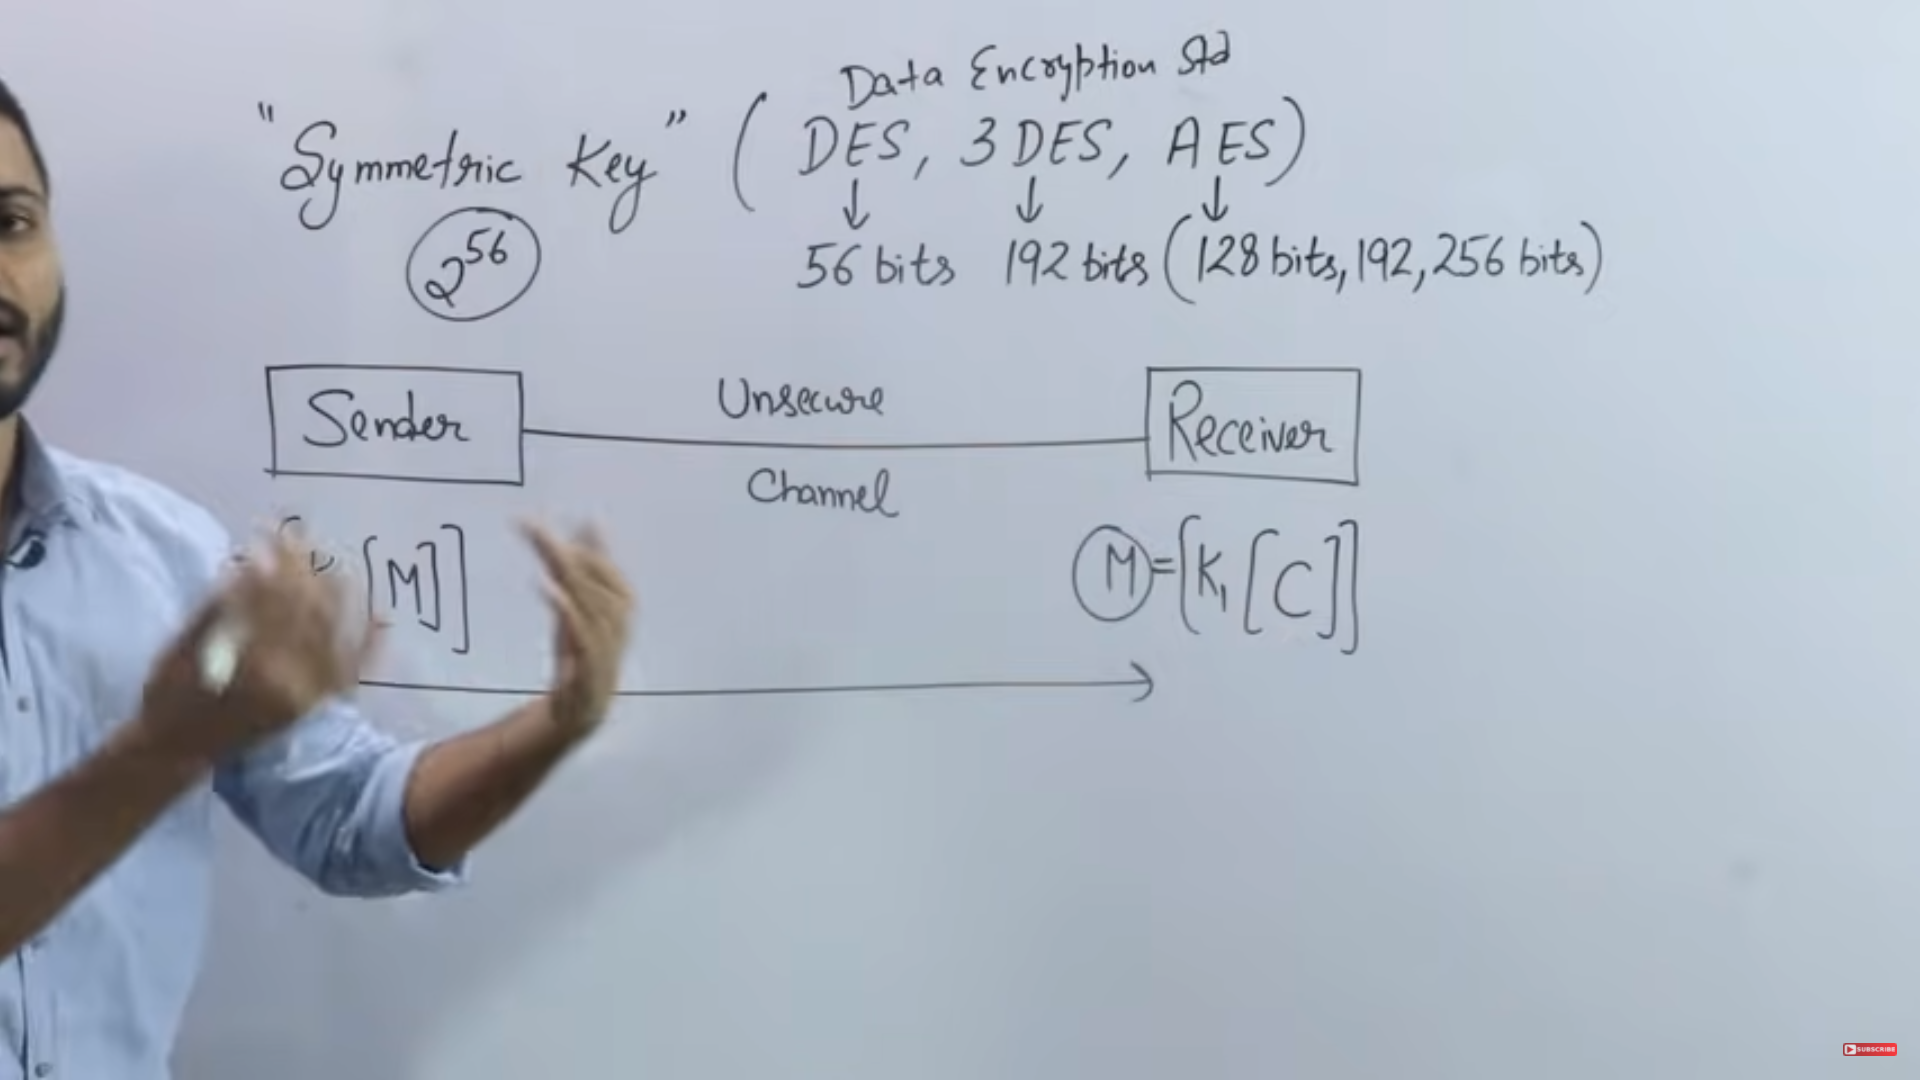 Data Encryption Std
"Symmetric Key" ( DES, 3 DES, AES )
2^56
↓ ↓ ↓
56 bits 192 bits (128 bits, 192, 256 bits)
Sender
Unsecure
Channel
Receiver
[M]]
M = [K₁ [C]]
SUBSCRIBE